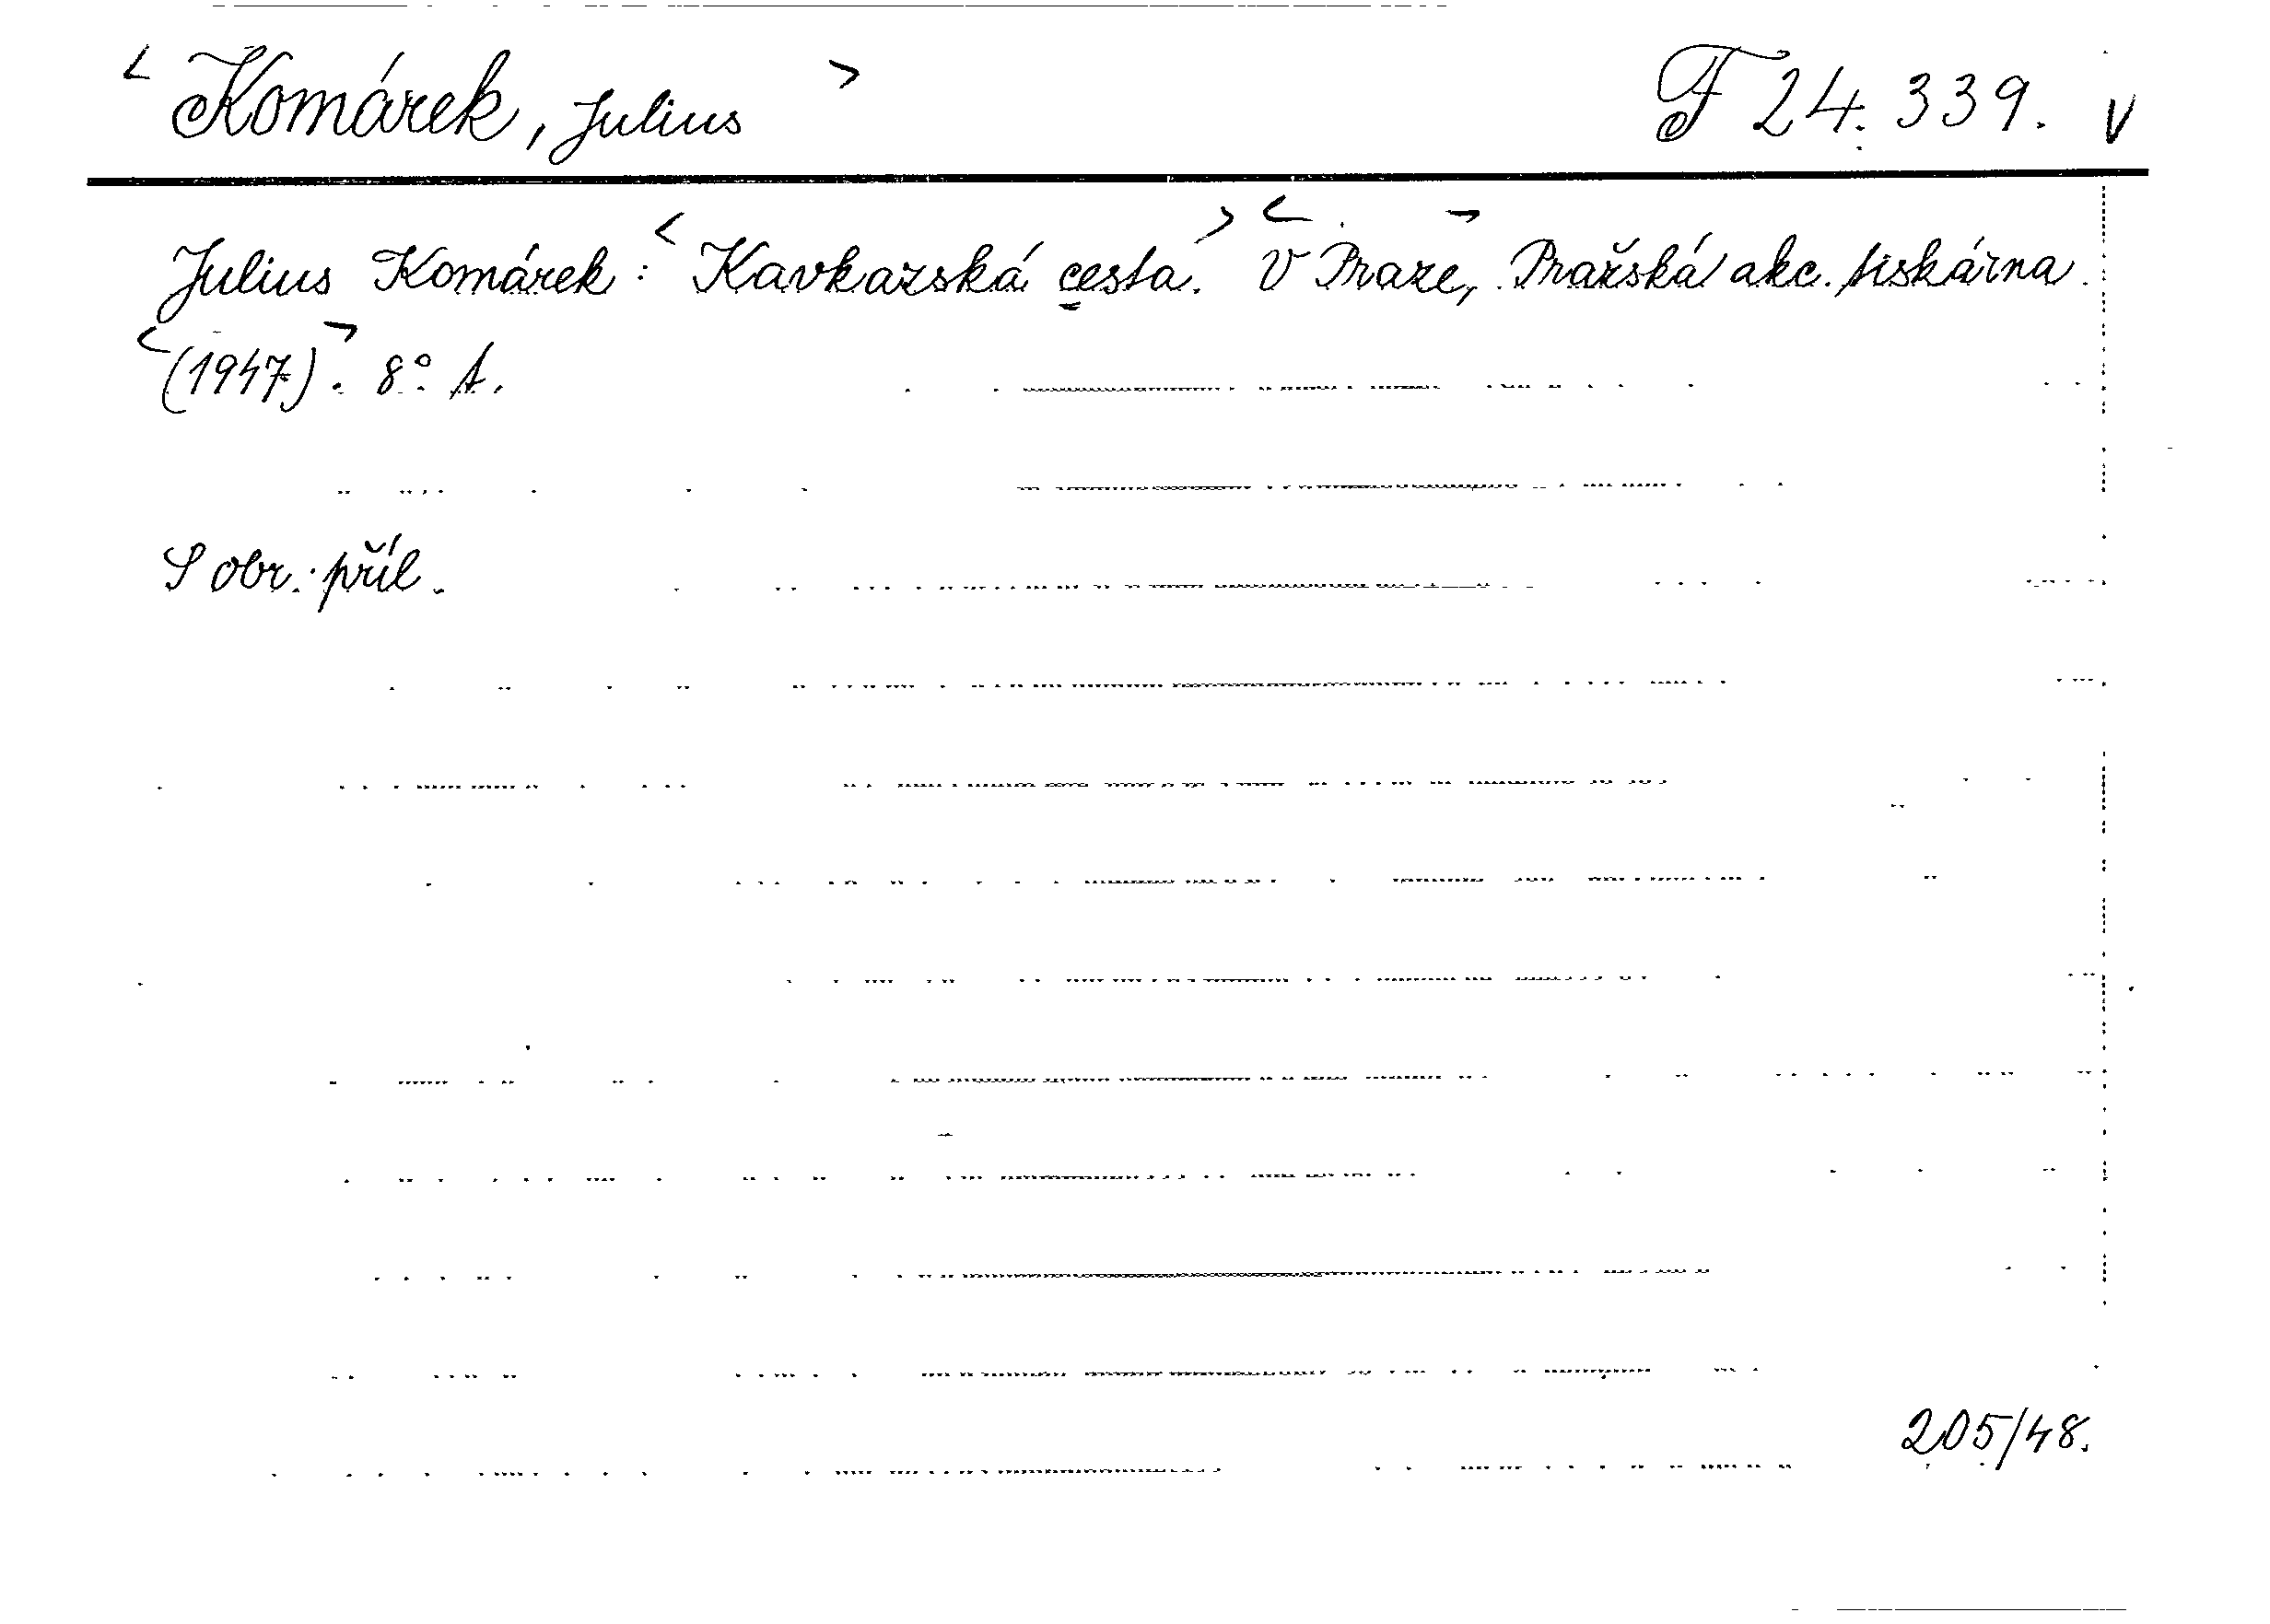 < Komárek, Julius > F 24.339. V
Julius Komárek: < Kavkazská cesta. > < V Praze, > Pražská akc. tiskárna.
< (1947) >. 8° A.
S obr. příl.
205/48.